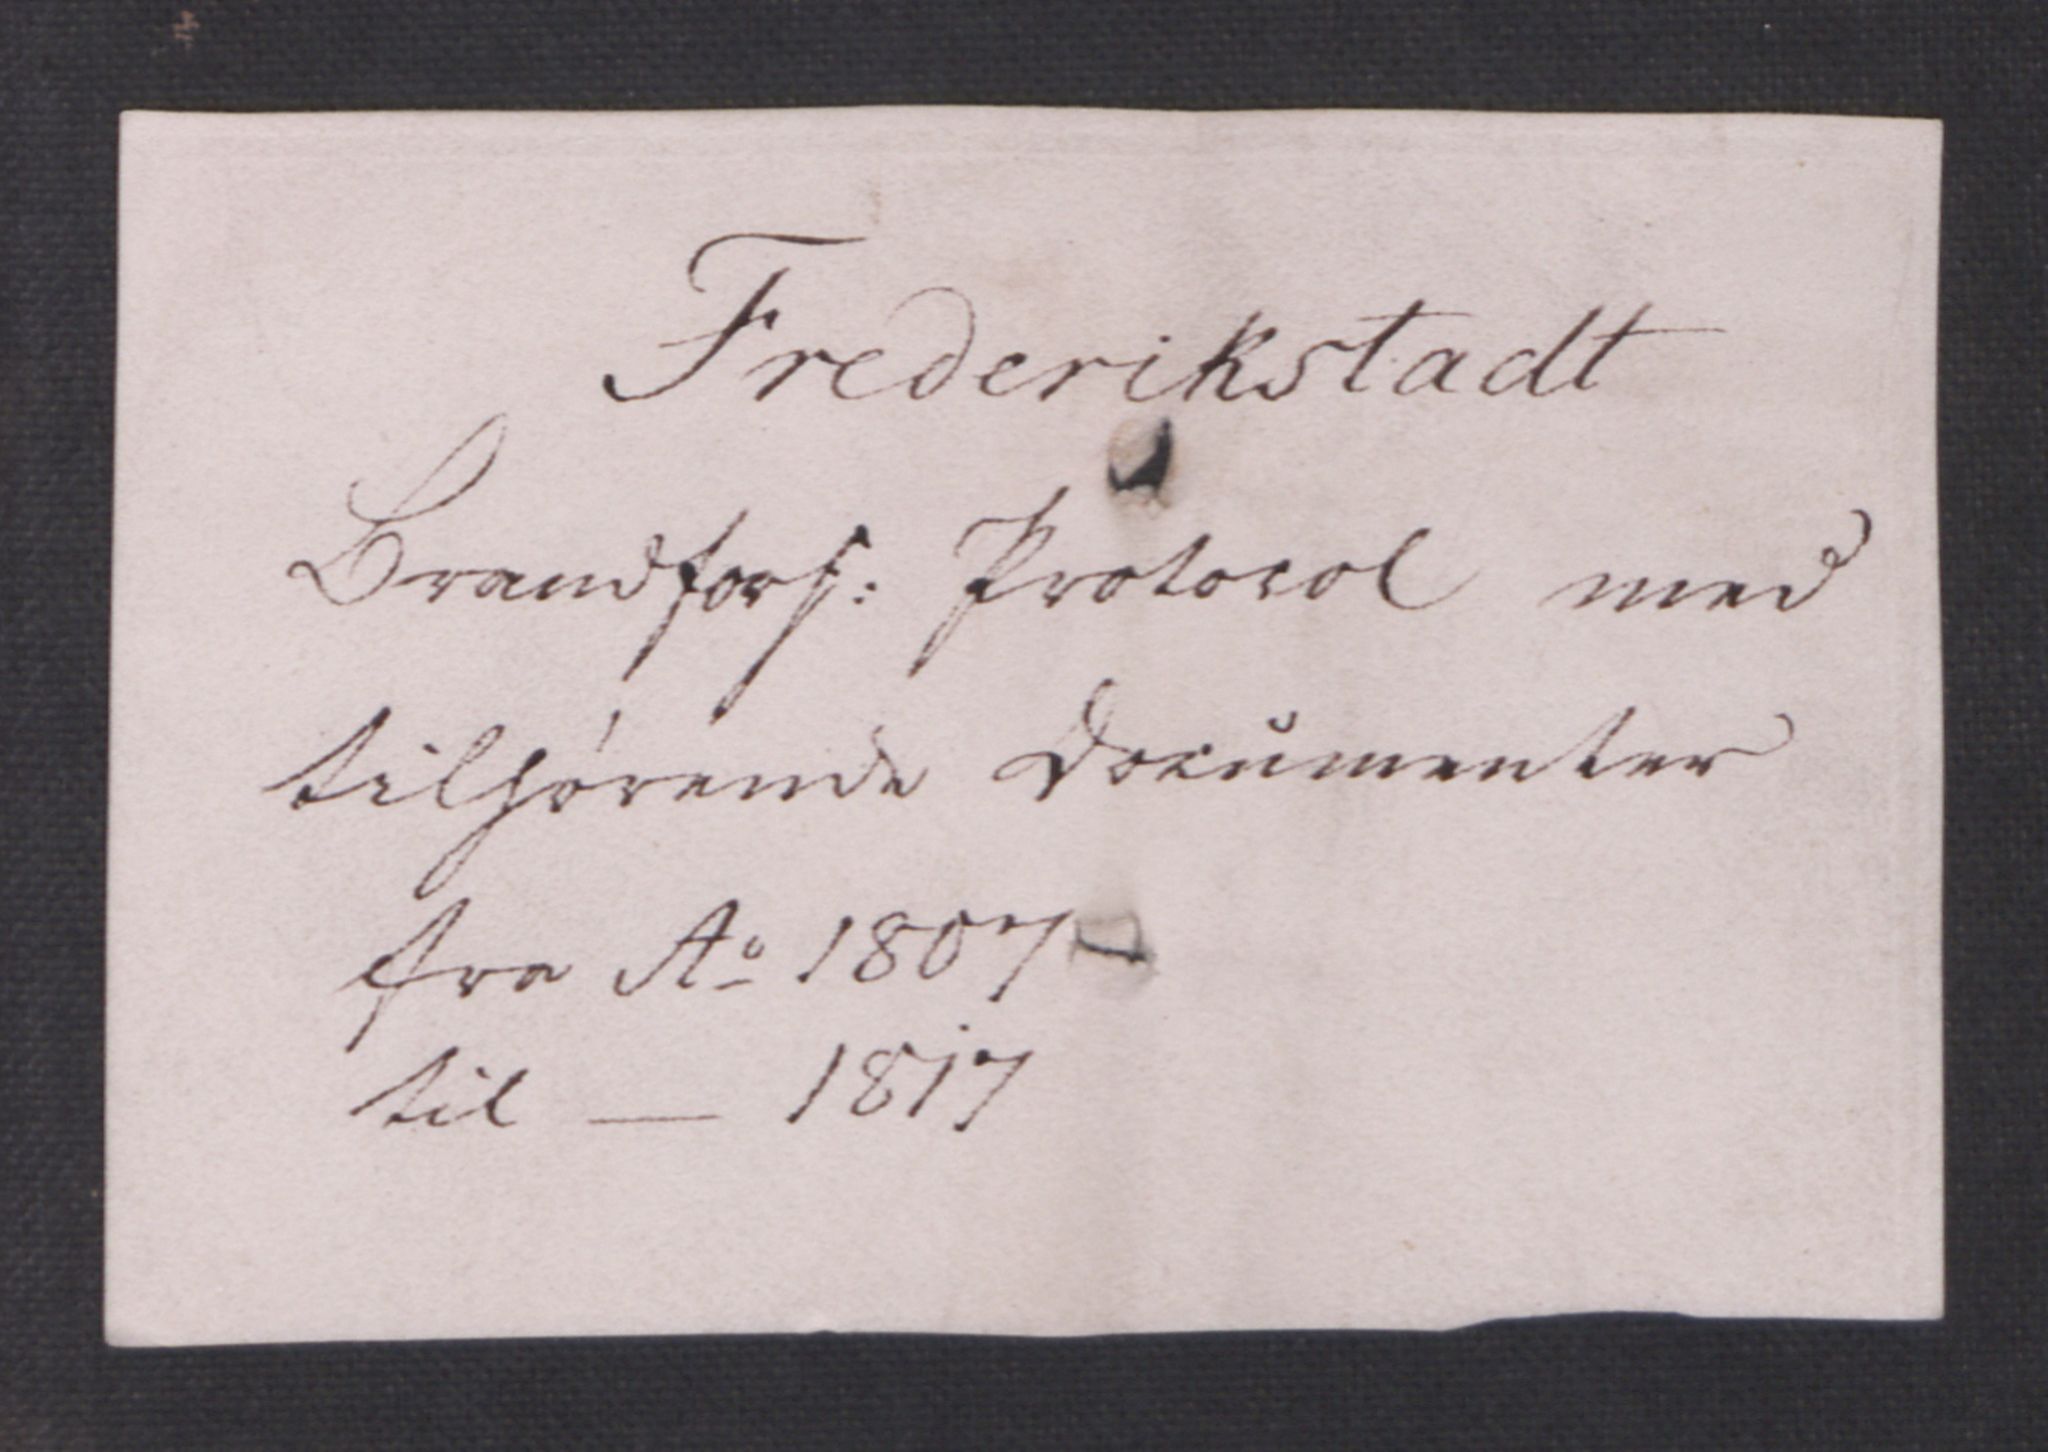 Frederikstadt
Brandfors: Protocol med
tilhørende Documenter
fra Ao 1807
til — 1817